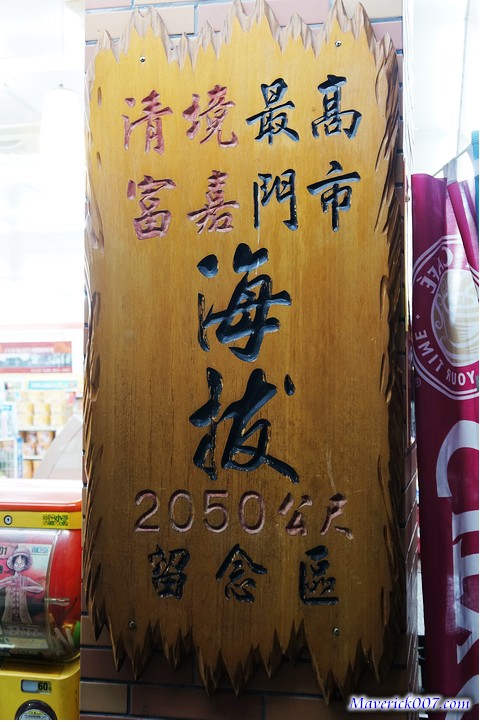 清境最高
富嘉門市
海
拔
2050公尺
留念區
CAFÉ
YOUR TIME
60
01
Maverick007.com